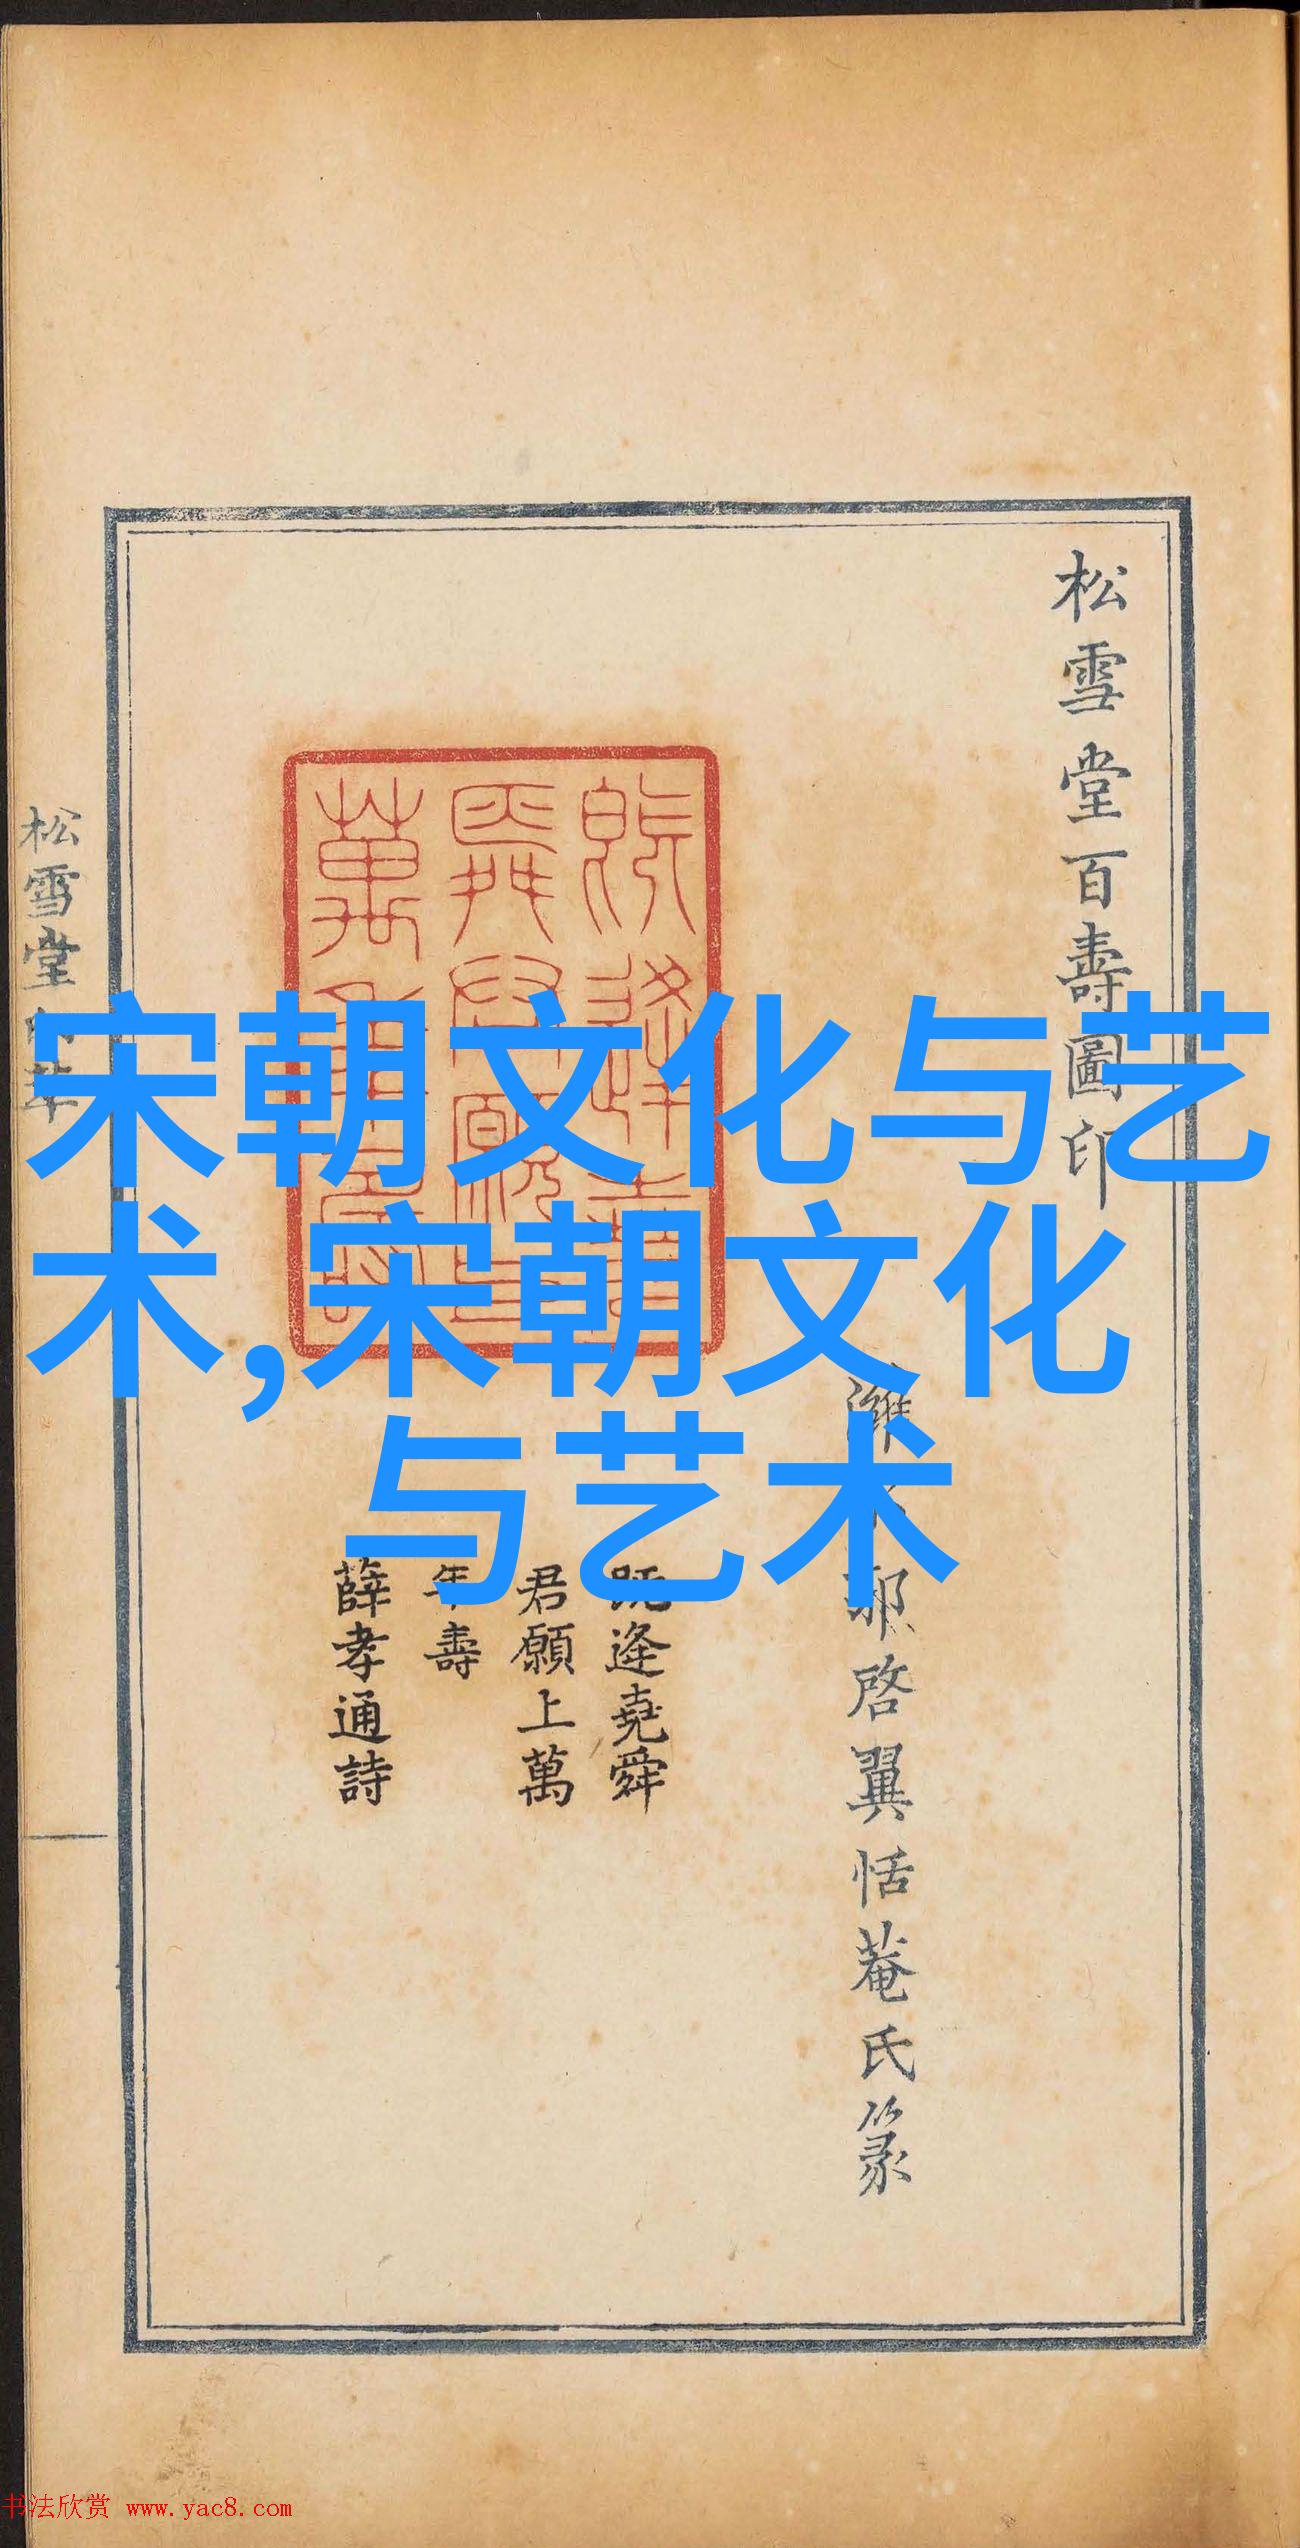 松雪堂百壽圖印
濰水郭啓翼恬菴氏篆
既逢堯舜
君願上萬
年壽
薛孝通詩
松雪堂印萃
宋朝文化与艺
术,宋朝文化
与艺术
书法欣赏 www.yac8.com